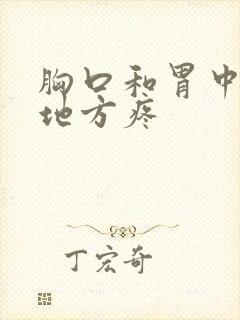 胸口和胃中
地方疼
丁宏奇